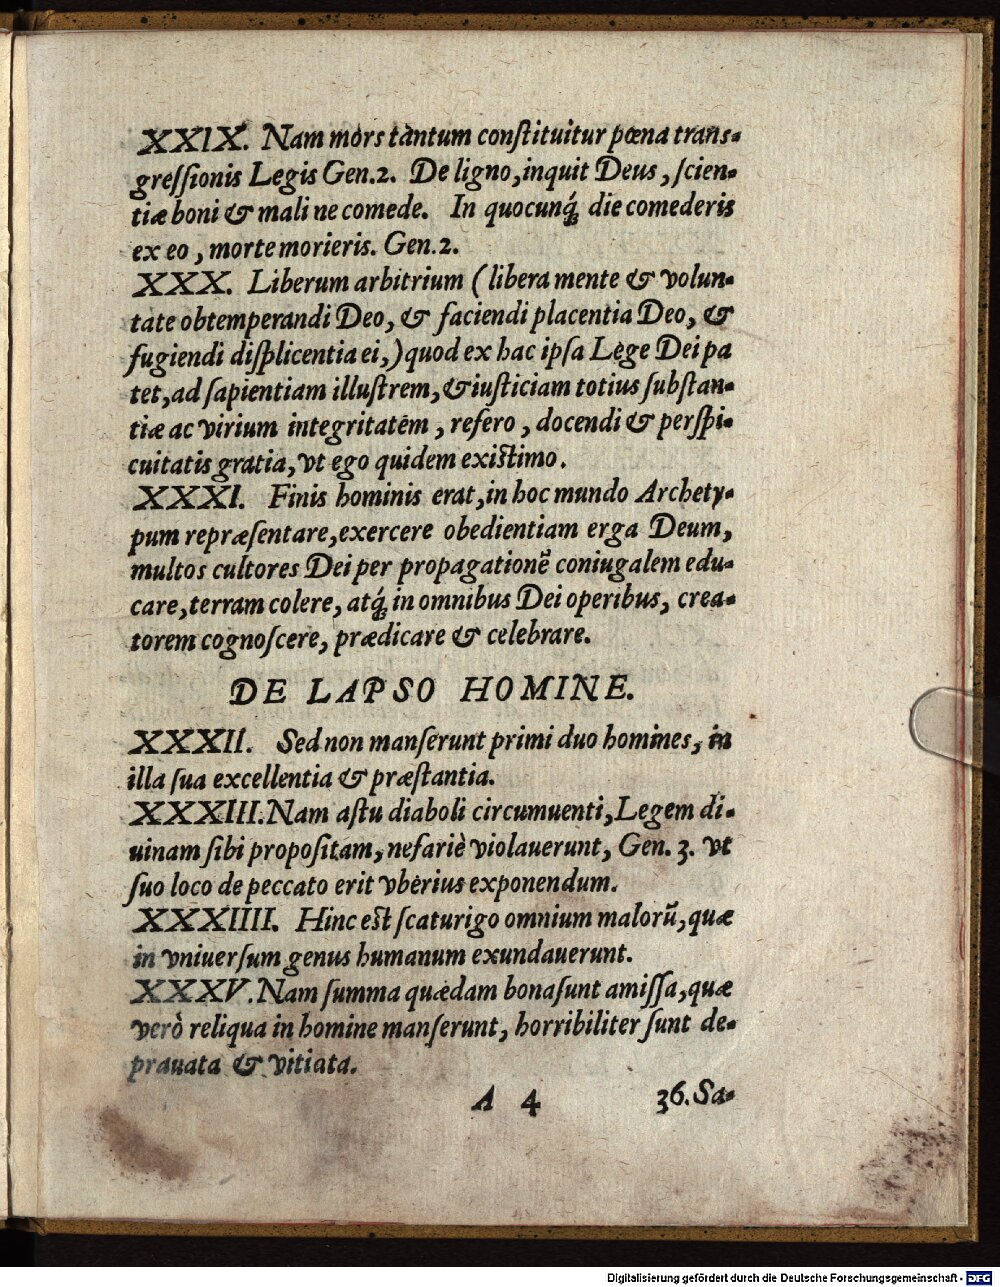 XXIX. Nam mors tàntum conſtituitur pœna trans-
greſsionis Legis Gen.2. De ligno, inquit Deus, ſcien-
tiæ boni & mali ne comede. In quocunq́; die comederis
ex eo, morte morieris. Gen.2.
XXX. Liberum arbitrium (libera mente & volun-
tate obtemperandi Deo, & faciendi placentia Deo, &
fugiendi diſplicentia ei,) quod ex hac ipſa Lege Dei pa
tet, ad ſapientiam illuſtrem, & iuſticiam totius ſubſtan-
tiæ ac virium integritatẽm, refero, docendi & perſpi-
cuitatis gratia, vt ego quidem exiſtimo.
XXXI. Finis hominis erat, in hoc mundo Archety-
pum repræſentare, exercere obedientiam erga Deum,
multos cultores Dei per propagationẽ coniugalem edu-
care, terram colere, atq́; in omnibus Dei operibus, crea-
torem cognoſcere, prædicare & celebrare.
DE LAPSO HOMINE.
XXXII. Sed non manſerunt primi duo homines, in
illa ſua excellentia & præſtantia.
XXXIII. Nam aſtu diaboli circumuenti, Legem di-
uinam ſibi propoſitam, nefariè violauerunt, Gen. 3. vt
ſuo loco de peccato erit vberius exponendum.
XXXIIII. Hinc eſt ſcaturigo omnium malorũ, quæ
in vniuerſum genus humanum exundauerunt.
XXXV. Nam ſumma quædam bona ſunt amiſſa, quæ
verò reliqua in homine manſerunt, horribiliter ſunt de-
prauata & vitiata.
A 4 36. Sa-
Digitalisierung gefördert durch die Deutsche Forschungsgemeinschaft - DFG